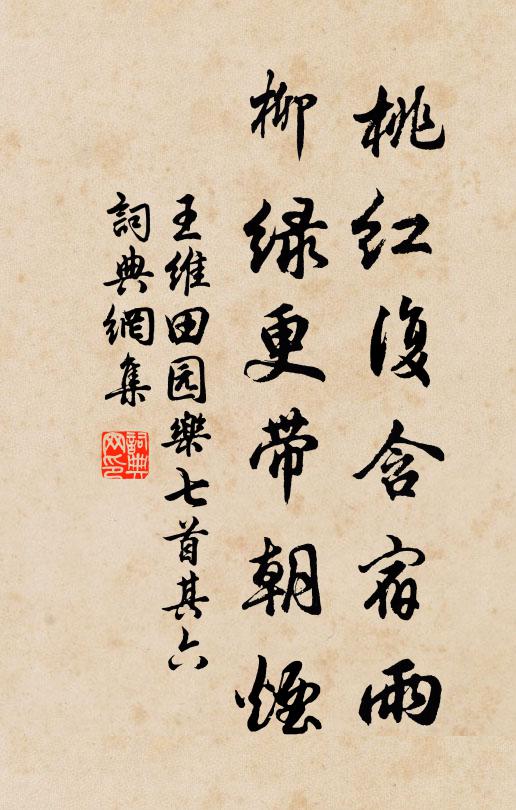 桃红復含宿雨
柳绿更带朝烟
王维田园樂七首其六
詞典網集
詞典网印